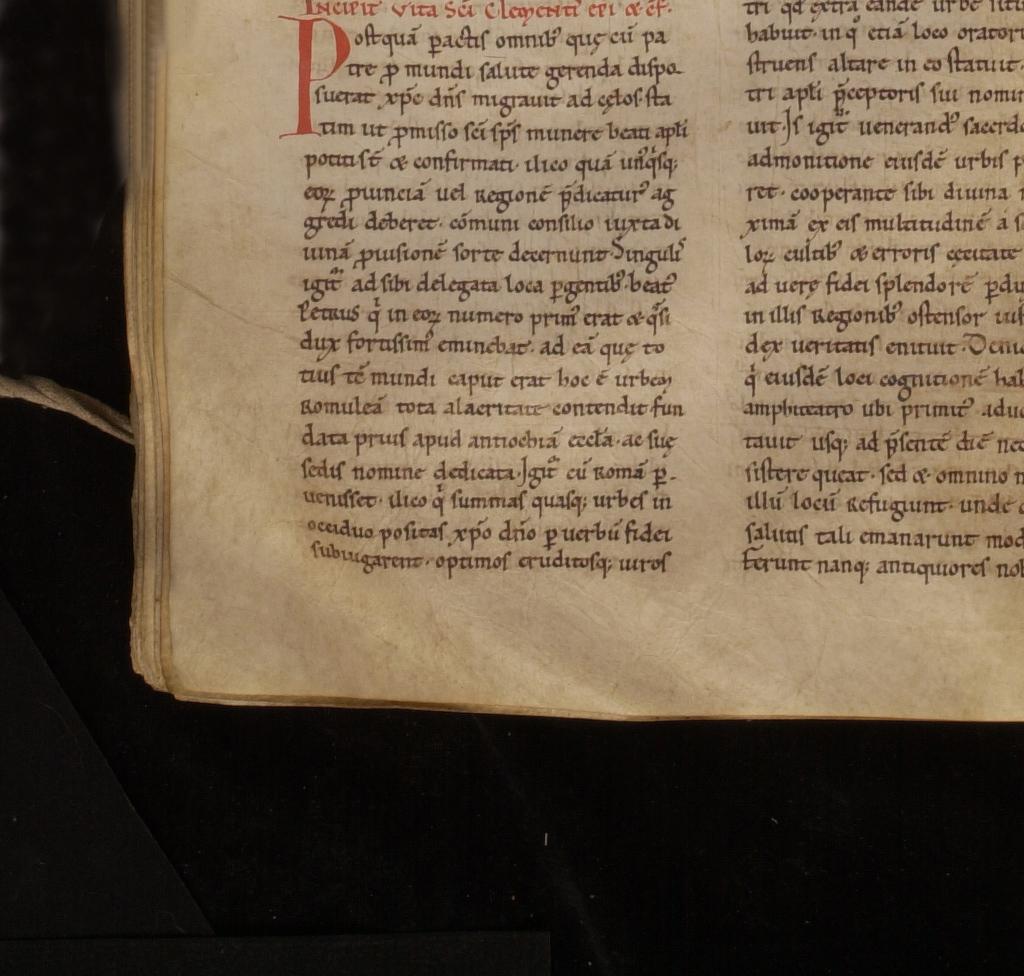 Incipit Vita Sci Clementi epi & cf.
Postquā pactis omnib' quę cū pa
tre ꝓ mundi salute gerenda dispo
suerat xp̄c dn̄s migrauit ad cęlos· sta
tim ut ꝓmisso sc̄i sp̄s munere beati apl̄i
potiti st̄ & confirmati· ilico quā un'q'sq;
eoꝝ ꝓuinciā uel Regionē p̄dicatur' ag
gredi deberet· cōmuni consilio iuxta di
uinā ꝓuisionē sorte decernunt· Singuli'
igit̄ ad sibi delegata loca pgentib'· beat'
Petrus q̇ in eoꝝ numero prim' erat & q'si
dux fortissim' eminebat· ad eā quę to
tius tē mundi caput erat hoc ē urbem
Romuleā tota alacritate contendit· fun
data prius apud antiochiā eccl̄a· ac suę
sedis nomine dedicata· Igit̄ cū Romā ꝑ-
uenisset· ilico q̇ summas quasq; urbes in
occiduo positas xp̄o dn̄o ꝑ uerbū fidei
subiugarent· optimos eruditosq; uiros
tri qd extra eandē urbē
habuit· in q° etiā loco oratori
struens altare in eo statuit·
tri apl̄i p̄ceptoris sui nomi
uit· Is igit̄ uenerand' sacerd
admonitione eiusdē urbis
ret· cooperante sibi diuina
ximā ex eis multitudinē a
loꝝ cultib' & erroris cęcitate
ad uerę fidei splendorē ꝑdu
in illis Regionib' ostensor
dex ueritatis enituit·
q̇ eiusdē loci cognitionē ha
amphiteatro ubi primit' adu
tauit usq; ad p̄sentē diē
sistere queat· sed & omnino
illū locū Refugiunt· unde
salutis tali emanarunt
Ferunt nanq; antiquiores